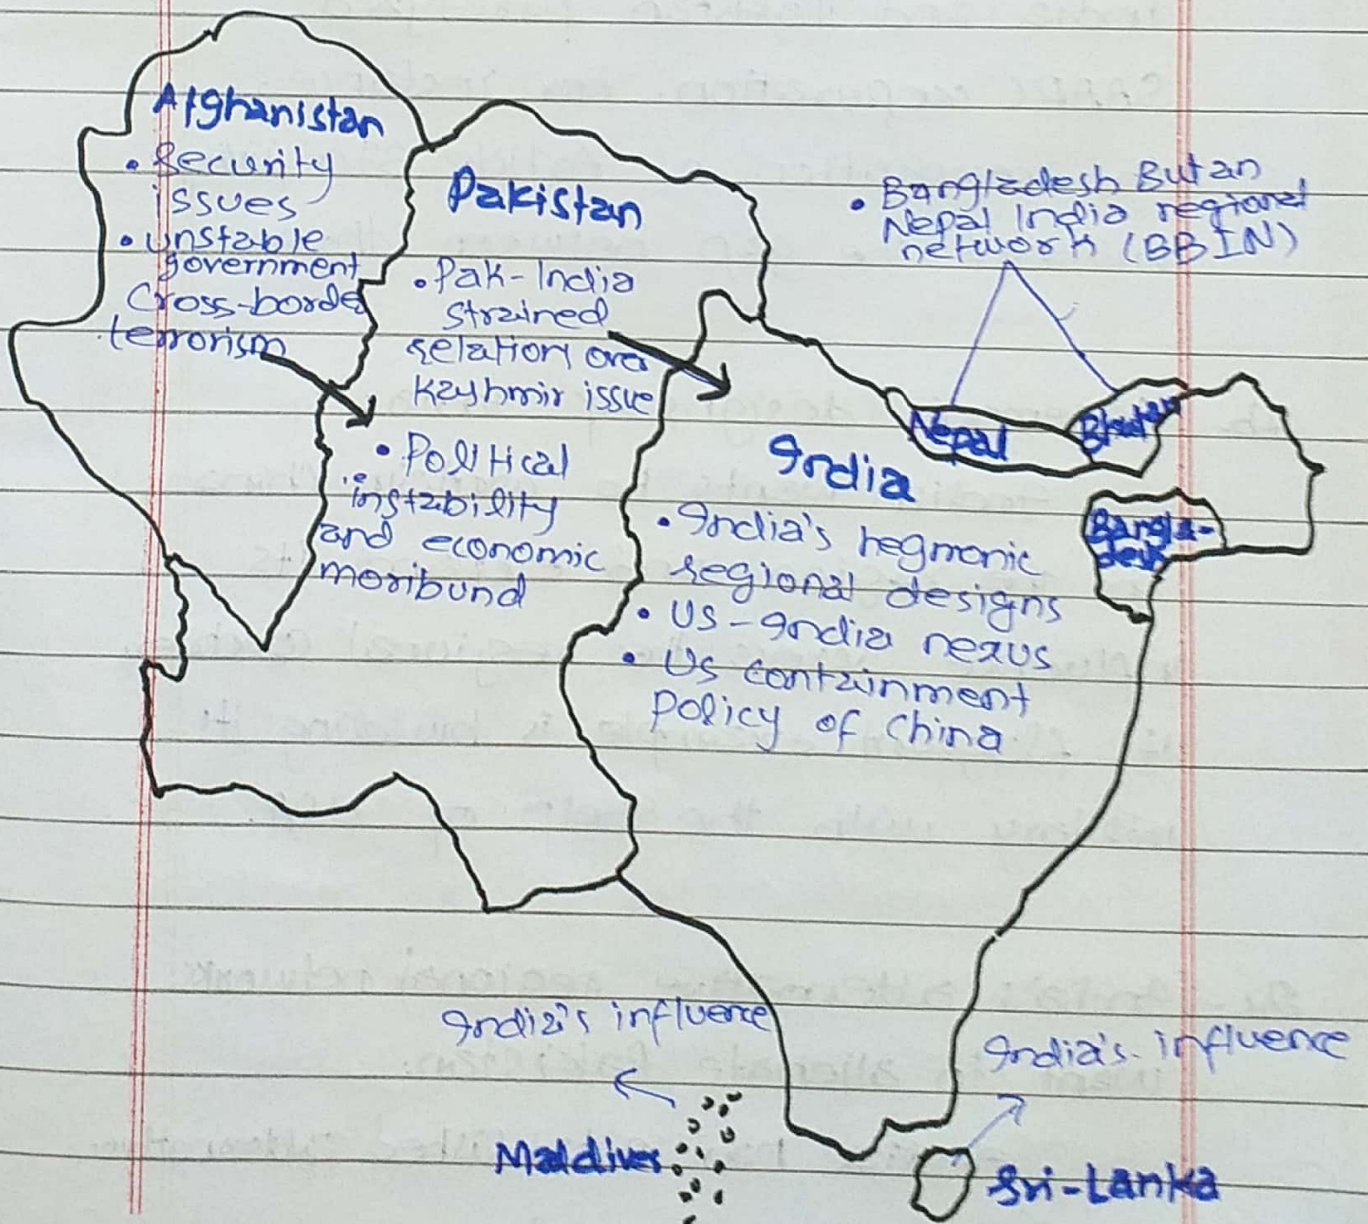 Afghanistan
• Security
issues
• unstable
government
Cross-border
terrorism
Pakistan
• Pak-India
strained
relation over
Kayhmir issue
• Political
instability
and economic
moribund
• Bangladesh Butan
Nepal India regional
network (BBIN)
Nepal
Bhutan
Bangla-
desh
India
• India's hegmonic
regional designs
• US-India nexus
• US containment
policy of China
India's influence
Maldives
India's influence
Sri-Lanka